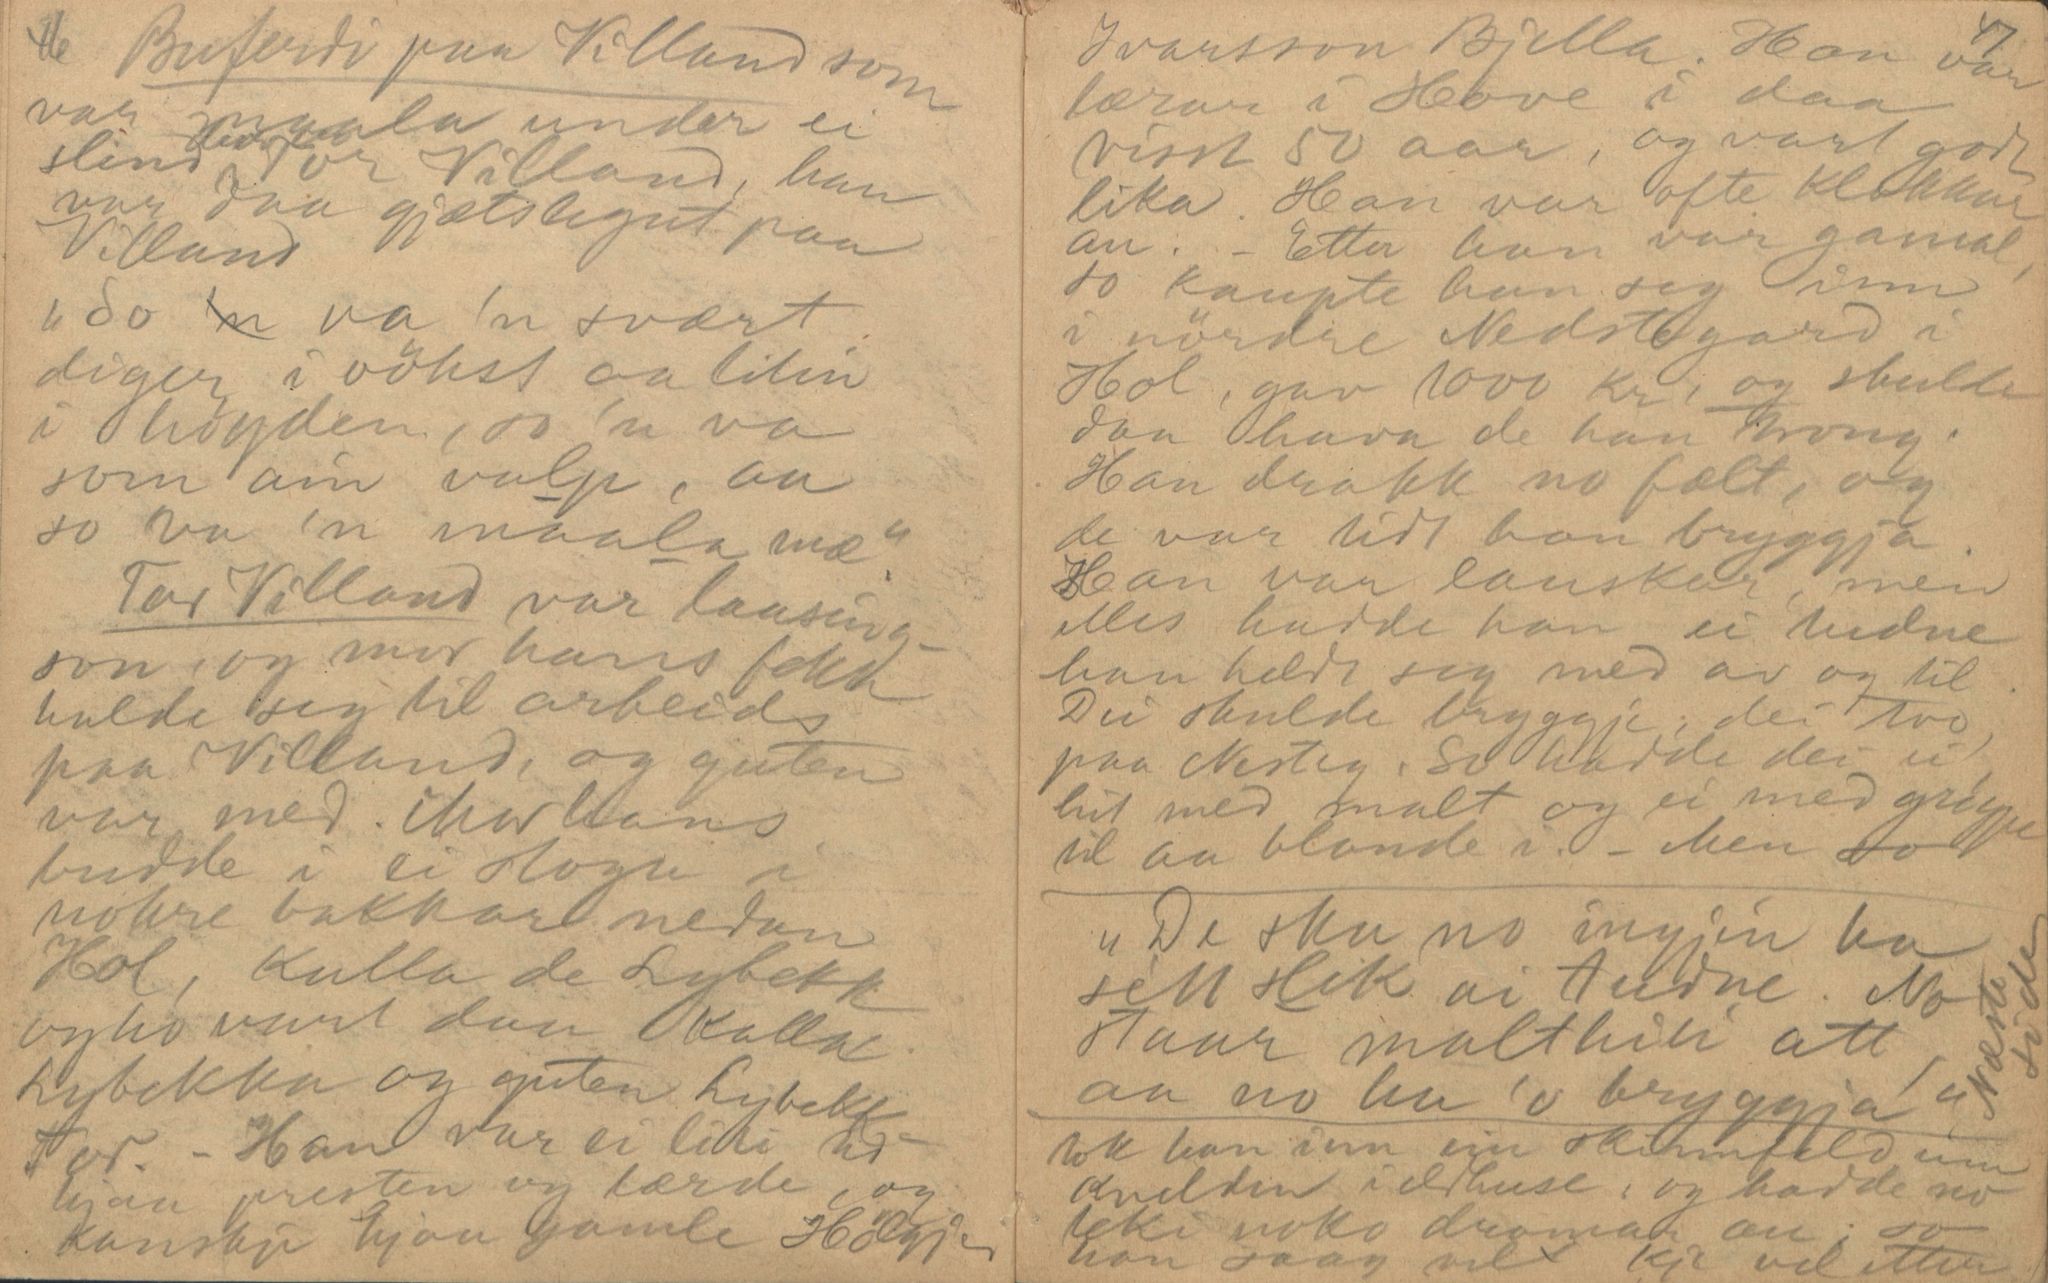 46
Buferdi paa Villand som
var maala under ei
slind Tor Villand, han
var daa gjætslegut paa
Villand
"So 'n va 'n svært
diger i vökst aa litin
i högden, so 'n va
som ain valp, aa
so va 'n maala mæ"
Tor Villand var lausing-
son, og mor hans fekk
halde seg til arbeids
paa Villand, og guten
var med. Mor hans
budde i ei stogu i
nokre bakkar nedan
Hol, kalla de Lybekk
og ho vart daa kalla
Lybekka og guten Lybekk-
Tor. - Han var ei liti tid
hjaa presten og lærde, og
kanskje hjaa gamle Hölgje
47
Ivarsson Bjella. Han var
lærar i Hove i daa
visst 50 aar, og vart godt
lika. Han var ofte klokkar
au. - Etter han var gamal,
so kaupte han seg inn
i nördre Nedstegard i
Hol, gav 1000 kr, og skulde
daa hava de han trong.
Han drakk no fælt, og
de var tidt han bryggja.
Han var lauskar, men
elles hadde han ei tudne
han heldt seg med av og til.
Dei skulde bryggje, dei two,
paa Nesteg. So hadde dei ei
hit med malt og ei med gröppe
til aa blande i. - Men so
"De ska no ingjin ha
sett slik ai tudne. No
staar malthiti att
aa no ha 'o bryggja!"
Næste side
tok han inn ein skinnfeld um
kvelden i eldhuse, og hadde no
teki noko dramar au; so
han saag vel kje vel etter